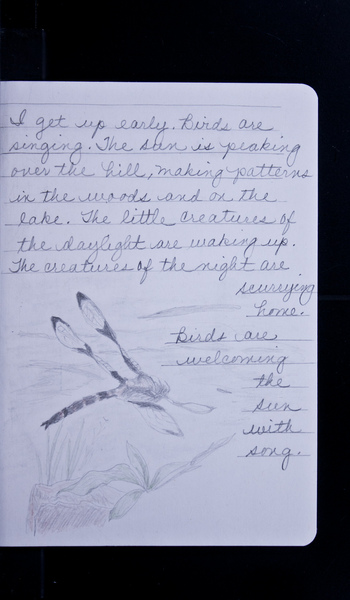 I get up early. Birds are
singing. The sun is peaking
over the hill, making patterns
in the woods and on the
lake. The little creatures of
the daylight are waking up.
The creatures of the night are
scurrying
home.
Birds are
welcoming
the
sun
with
song.